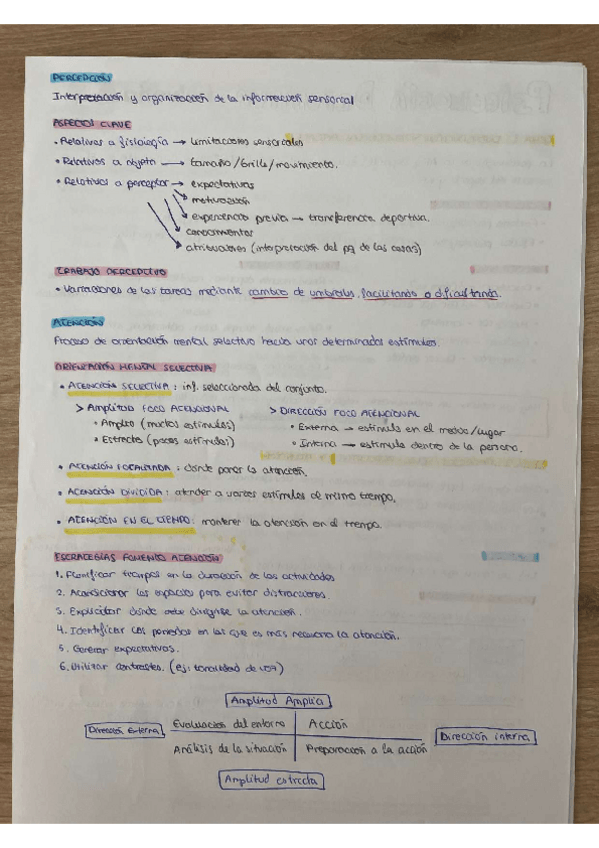 PERCEPCIÓN
Interpretación y organización de la información sensorial
ASPECTOS CLAVE
• Relativos a fisiología → limitaciones sensoriales
• Relativos a objeto → tamaño/brillo/movimiento.
• Relativos a perceptor → expectativas
motivación
experiencia previa → transferencia deportiva.
conocimientos
atribuciones (interpretación del pq de las cosas)
TRABAJO PERCEPTIVO
• Variaciones de las tareas mediante cambio de umbrales, facilitando o dificultando.
ATENCIÓN
Proceso de orientación mental selectivo hacia unos determinados estímulos.
ORIENTACIÓN MENTAL SELECTIVA
• ATENCIÓN SELECTIVA: inf. seleccionada del conjunto.
> AMPLITUD FOCO ATENCIONAL > DIRECCIÓN FOCO ATENCIONAL
• Amplio (muchos estímulos) • Externa → estímulo en el medio/lugar
• Estrecto (pocos estímulos) • Interna → estímulo dentro de la persona.
• ATENCIÓN FOCALIZADA: donde poner la atención.
• ATENCIÓN DIVIDIDA: atender a varios estímulos al mismo tiempo.
• ATENCIÓN EN EL TIEMPO: mantener la atención en el tiempo.
ESTRATEGIAS FOMENTO ATENCIÓN
1. Planificar tiempos en la duración de las actividades
2. Acondicionar los espacios para evitar distracciones.
3. Explicitar donde debe dirigirse la atención.
4. Identificar los periodos en los que es más necesaria la atención.
5. Generar expectativas.
6. Utilizar contrastes. (ej: tonalidad de voz)
Amplitud Amplia
Dirección Externa
Evaluación del entorno Acción
Dirección interna
Análisis de la situación Preparación a la acción
Amplitud estrecha